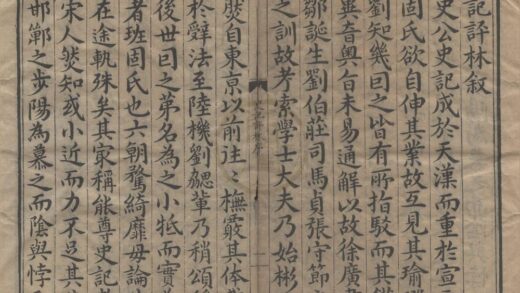 記評林叙
史公史記成於天漢而重於宣
固氏欲自伸其業故互見其瑜
劉知幾囙之皆有所指駁而其
異音與旨未易通解以故徐廣
鄒誕生劉伯莊司馬貞張守節
之訓故考索學士大夫乃始彬
然自東京以前往往橅竅其体
於辤法至陸機劉勰輩乃稍頌
後世囙之第名為之小牴而實
者班固氏也六朝騖綺靡毋論
在途軌殊矣其冣稱能尊史記
宋人然知或小近而力不足其
邯鄲之步陽為慕之而陰與悖